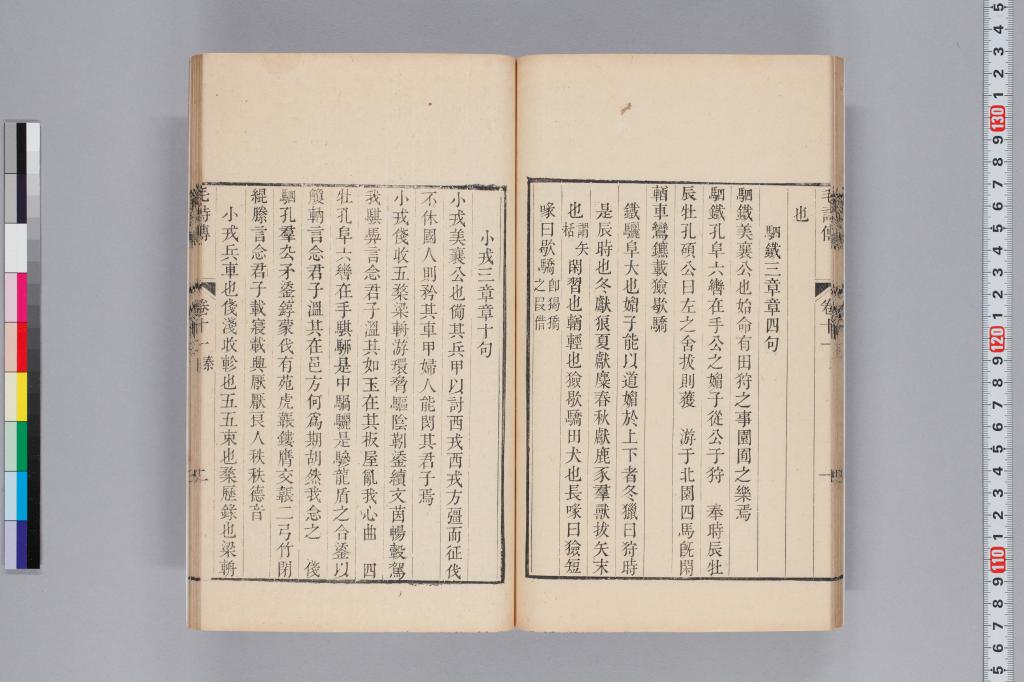 也
駟鐵三章章四句
駟鐵美襄公也始命有田狩之事園囿之樂焉
駟鐵孔阜六轡在手公之媚子從公于狩　奉時辰牡
辰牡孔碩公曰左之舍拔則獲　游于北園四馬旣閑
輶車鸞鑣載獫歇驕
鐵驪阜大也媚子能以道媚於上下者冬獵曰狩時
是辰時也冬獻狼夏獻麋春秋獻鹿豕羣獸拔矢末
也謂矢括閑習也輶輕也獫歇驕田犬也長喙曰獫短
喙曰歇驕卽猲獢之叚借
小戎三章章十句
小戎美襄公也備其兵甲以討西戎西戎方彊而征伐
不休國人則矜其車甲婦人能閔其君子焉
小戎俴收五楘梁輈游環脅驅陰靷鋈續文茵暢轂駕
我騏馵言念君子溫其如玉在其板屋亂我心曲　四
牡孔阜六轡在手騏駵是中騧驪是驂龍盾之合鋈以
觼軜言念君子溫其在邑方何爲期胡然我念之　俴
駟孔羣厹矛鋈錞蒙伐有苑虎韔鏤膺交韔二弓竹閉
緄縢言念君子載寢載興厭厭良人秩秩德音
小戎兵車也俴淺收軫也五五束也楘歷錄也梁輈
毛詩傳
卷十一
秦